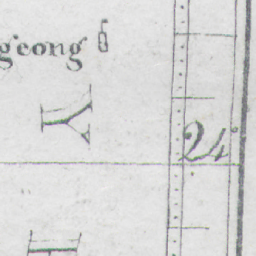 geong
Y
24
H